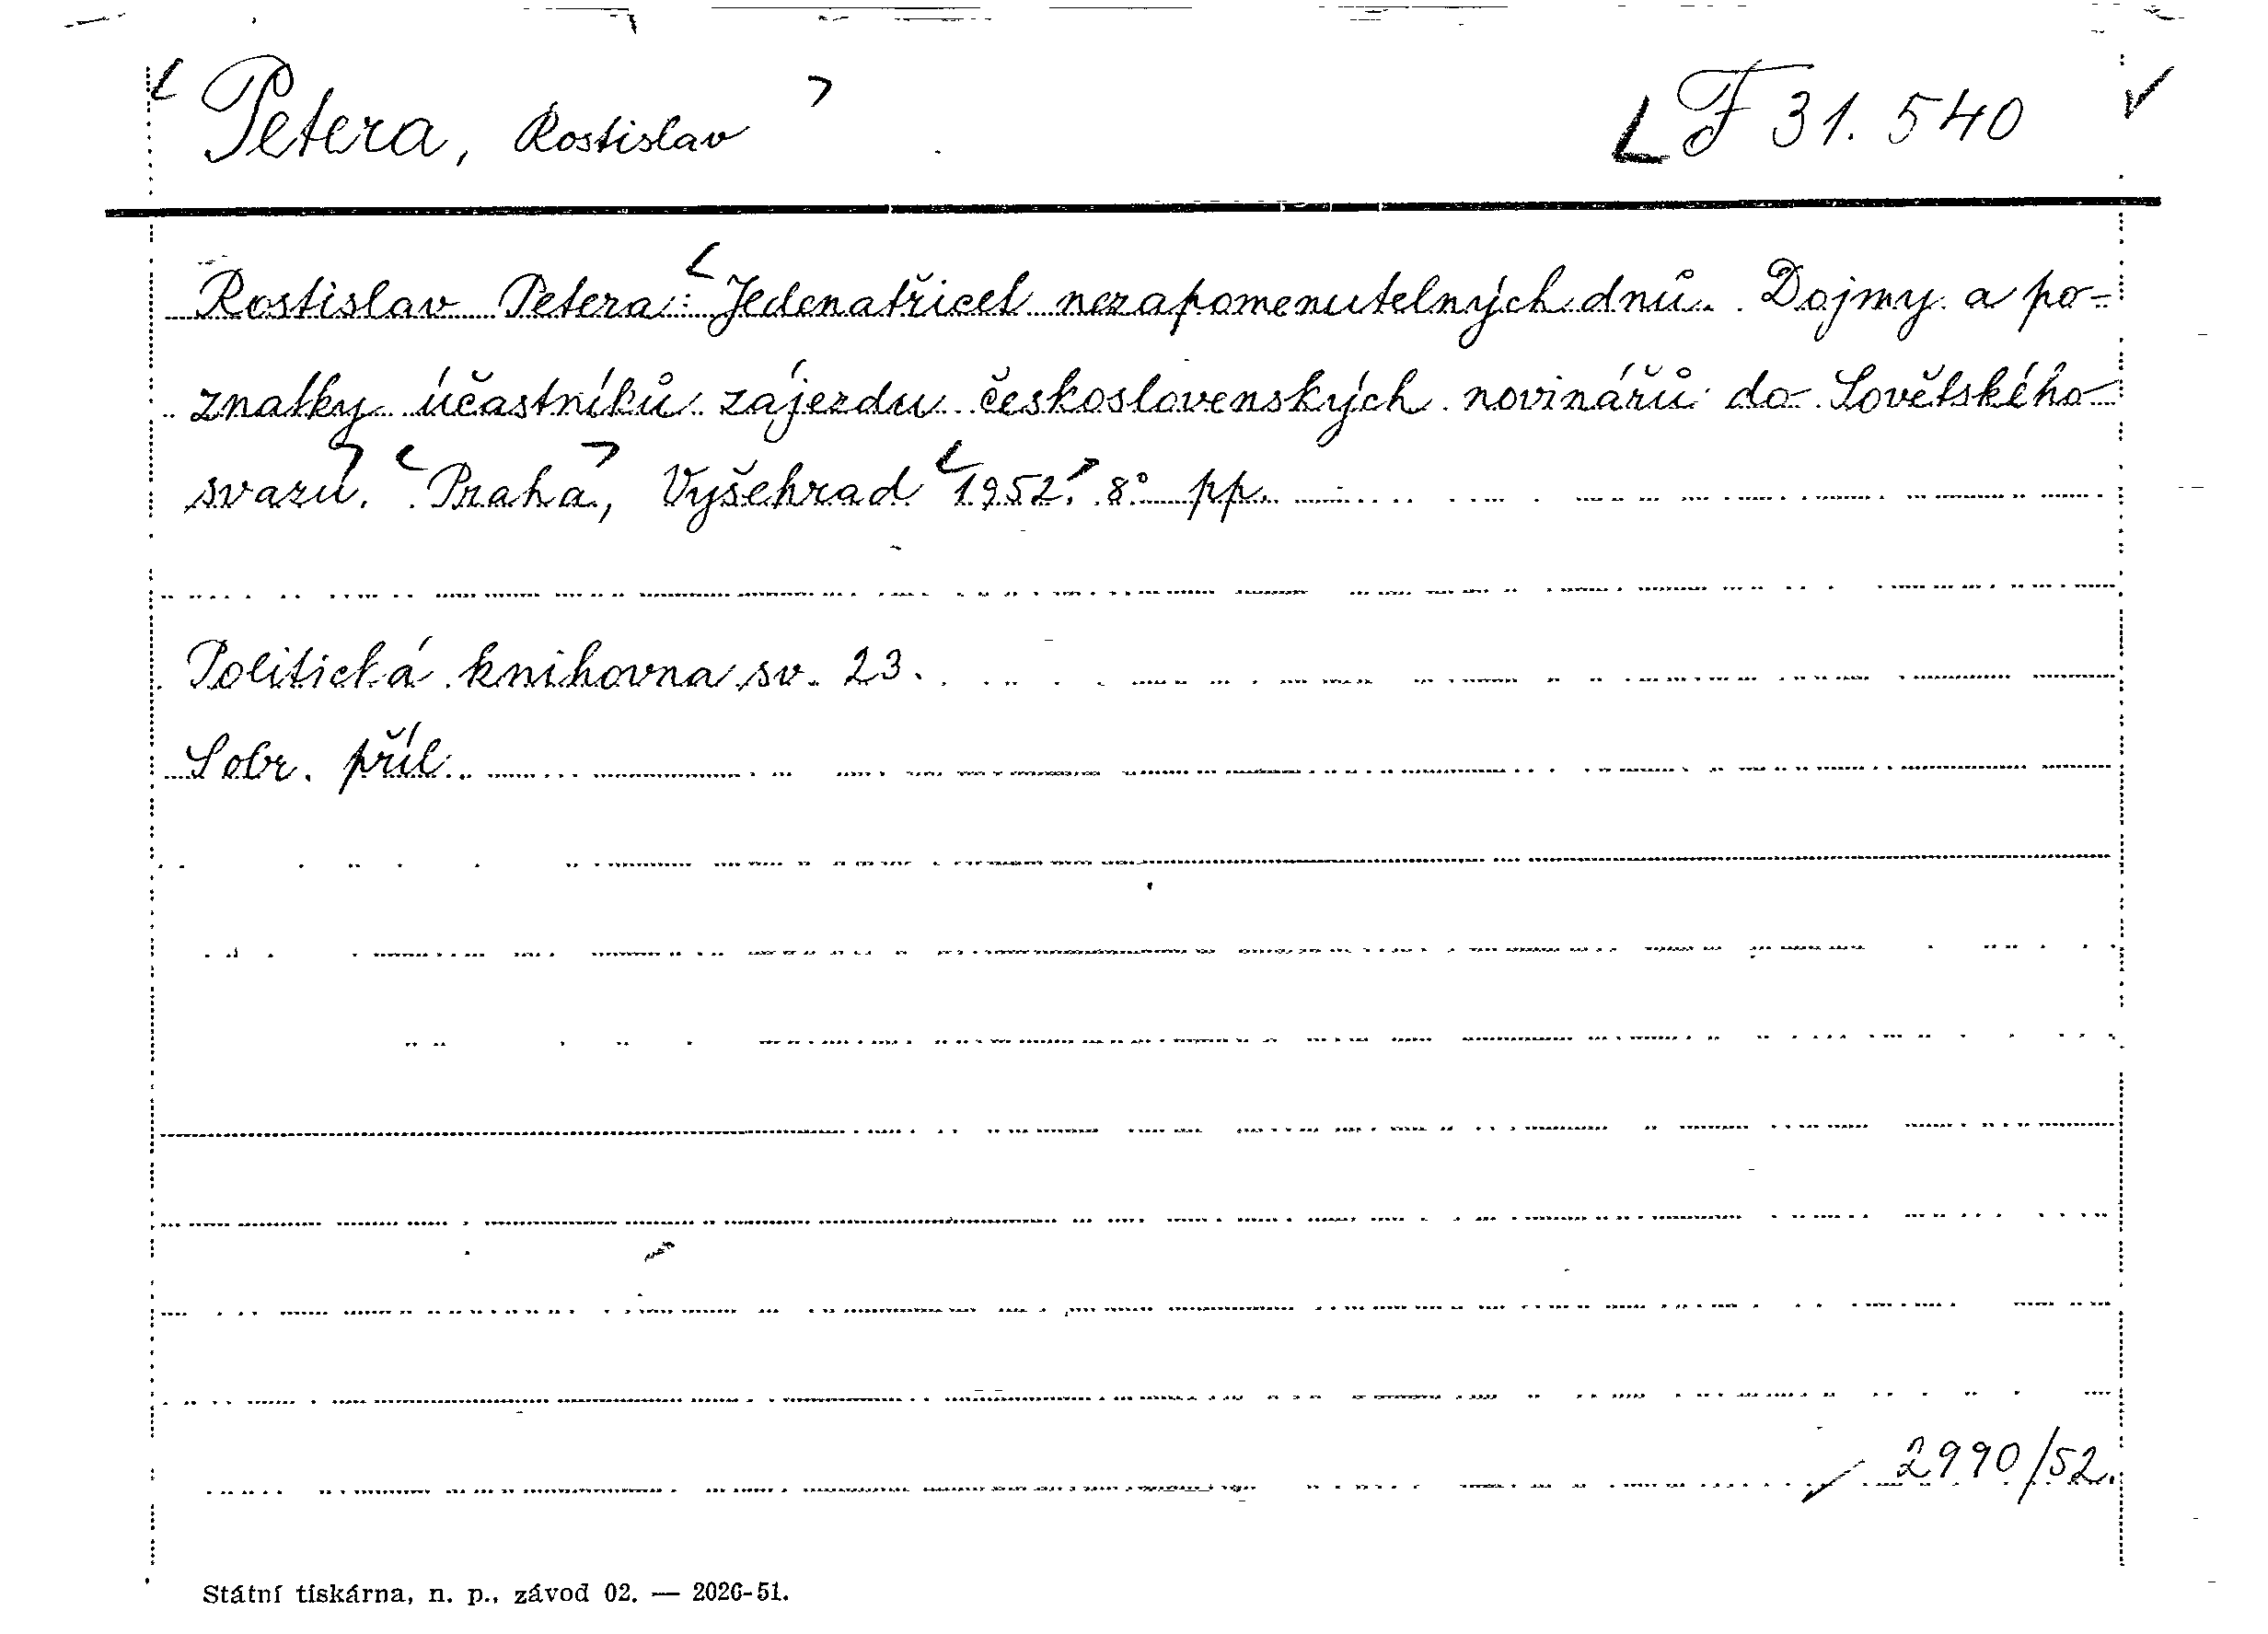 Petera, Rostislav F 31.540
Rostislav Petera: Jedenatřicet nezapomenutelných dnů. Dojmy a po-
znatky účastníků zájezdu československých novinářů do Sovětského
svazu. Praha, Vyšehrad 1952. 8° pp.
Politická knihovna sv. 23.
S obr. příl.
2990/52.
Státní tiskárna, n. p., závod 02. — 2026-51.